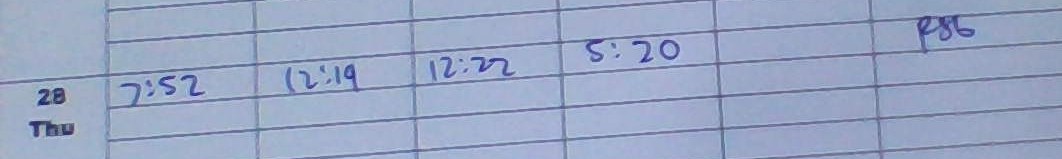 28 7:52 12:19 12:22 5:20
Thu